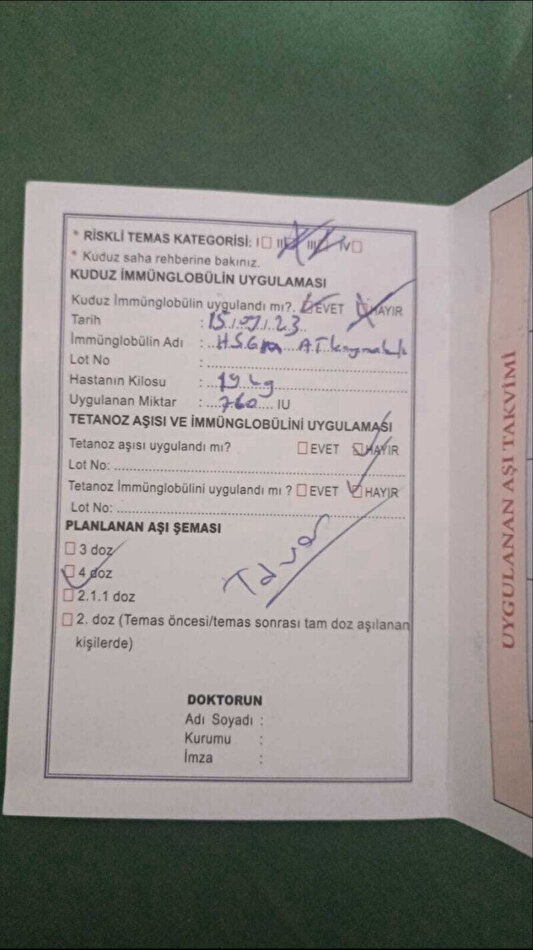 * RİSKLİ TEMAS KATEGORİSİ: I☐ II☐ III☐ IV☐
* Kuduz saha rehberine bakınız.
KUDUZ İMMÜNGLOBÜLİN UYGULAMASI
Kuduz İmmünglobülin uygulandı mı?. ☐EVET ☐HAYIR
Tarih :15./07/.23..
İmmünglobülin Adı :..H.S.G.M...AT kaynaklı
Lot No :
Hastanın Kilosu :...19 kg
Uygulanan Miktar :...760.... IU
TETANOZ AŞISI VE İMMÜNGLOBÜLİNİ UYGULAMASI
Tetanoz aşısı uygulandı mı? ☐EVET ☐HAYIR
Lot No:
Tetanoz İmmünglobülini uygulandı mı ? ☐EVET ☑HAYIR
Lot No:
PLANLANAN AŞI ŞEMASI
☐ 3 doz
☑ 4 doz
☐ 2.1.1 doz
☐ 2. doz (Temas öncesi/temas sonrası tam doz aşılanan
kişilerde)
DOKTORUN
Adı Soyadı :
Kurumu :
İmza :
UYGULANAN AŞI TAKVİMİ